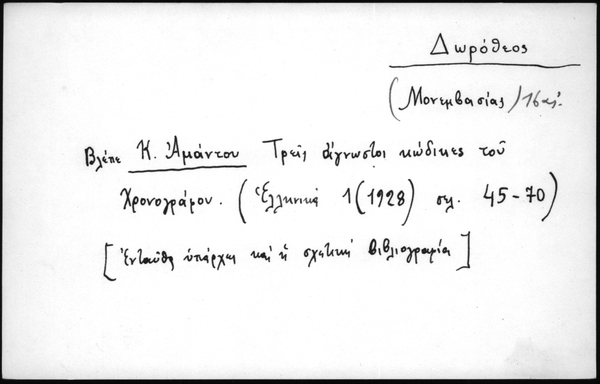 Δωρόθεος
(Μονεμβασίας) 16 αἰ.
Βλέπε Κ. Ἀμάντου Τρεῖς ἄγνωστοι κώδικες τοῦ
Χρονογράφου. (Ἑλληνικά 1 (1928) σελ. 45-70)
[Ἐνταῦθα ὑπάρχει καὶ ἡ σχετικὴ βιβλιογραφία]